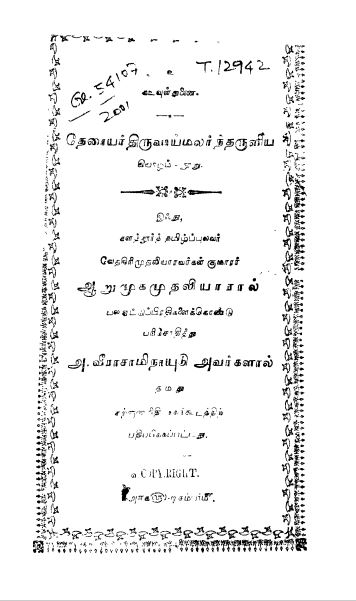 உ T.12942
R. 54107
2001
கடவுள்துணை.
தேரையர்திருவாய்மலர்ந்தருளிய
இஃது,
களத்தூர்த் தமிழ்ப்புலவர்
வேதகிரிமுதலியாரவர்கள் குமாரர்
ஆறுமுகமுதலியாரால்
பலஏட்டுப்பிரதிகளைக்கொண்டு
பரிசோதித்து
அ. வீராசாமிநாயுடு அவர்களால்
தமது
பதிப்பிக்கப்பட்டது.
COPYRIGHT.
டிசம்பர்மீ